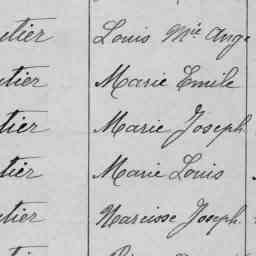 utier Louis Mie Ange
utier Marie Emile
tier Marie Joseph
tier Marie Louis
utier Narcisse Joseph